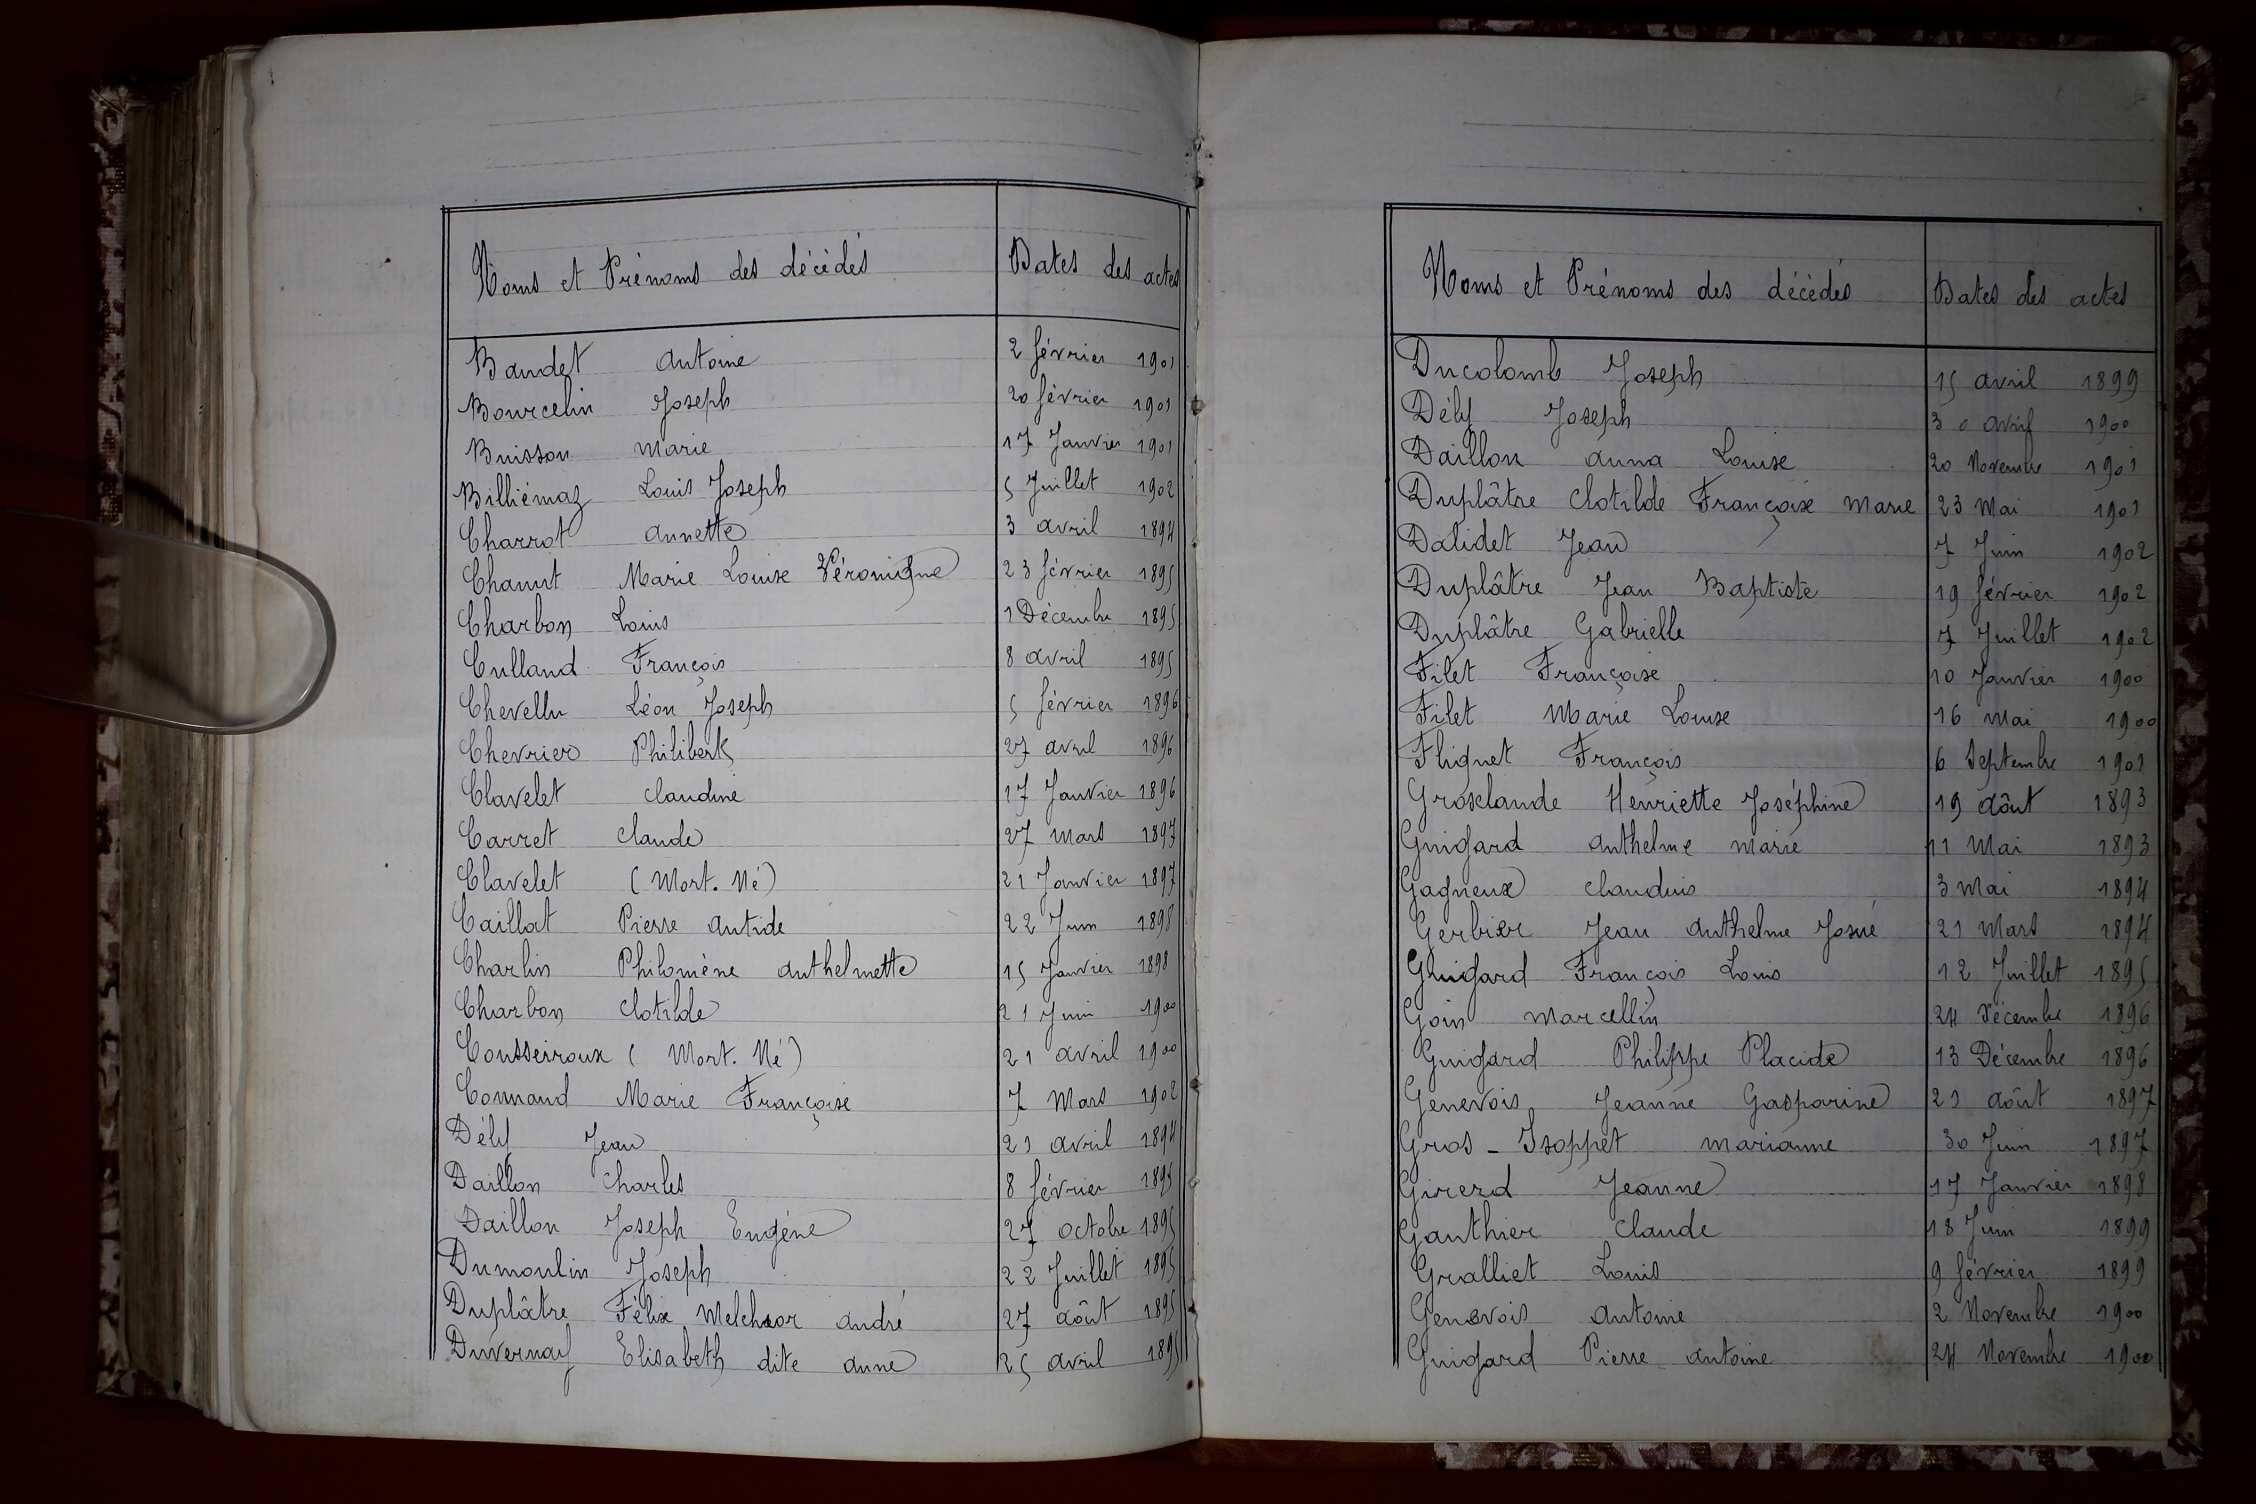 Noms et Prénoms des décédés Dates des actes
Baudet Antoine 2 février 1901
Bourcelin Joseph 20 février 1901
Buisson Marie 17 Janvier 1901
Billiémaz Louis Joseph 5 Juillet 1902
Charrot Annette 3 avril 1894
Chanut Marie Louise Véronique 23 février 1895
Charbon Louis 1 Décembre 1895
Culland François 8 avril 1895
Chevellu Léon Joseph 5 février 1896
Chevrier Philibert 27 avril 1896
Clavelet Claudine 17 Janvier 1896
Carret Claude 27 Mars 1897
Clavelet (Mort. Né) 21 Janvier 1897
Caillat Pierre Antide 22 Juin 1898
Charlin Philomène Anthelmette 15 Janvier 1898
Charbon Clotilde 21 Juin 1900
Cousseiroux (Mort. Né) 21 avril 1900
Connand Marie Françoise 7 Mars 1902
Dély Jean 21 avril 1894
Daillon Charles 8 février 1895
Daillon Joseph Eugéne 27 octobre 1895
Dumoulin Joseph 22 Juillet 1895
Duplâtre Félix Melchior André 27 Août 1895
Duvernay Elisabeth dite Anne 25 avril 1895
Noms et Prénoms des décédés Dates des actes
Ducolomb Joseph 15 avril 1899
Dély Joseph 30 avril 1900
Daillon Anna Louise 20 Novembre 1901
Duplâtre Clotilde Françoise Marie 23 Mai 1901
Dalidet Jean 7 Juin 1902
Duplâtre Jean Baptiste 19 février 1902
Duplâtre Gabrielle 7 Juillet 1902
Filet Françoise 10 Janvier 1900
Filet Marie Louise 16 Mai 1900
Fliguet François 6 Septembre 1901
Grosclaude Henriette Joséphine 19 Août 1893
Guigard Anthelme Marie 11 Mai 1893
Gagneux Claudius 3 Mai 1894
Gerbier Jean Anthelme Josué 21 Mars 1894
Guigard François Louis 12 Juillet 1895
Goin Marcellin 24 Décembre 1896
Guigard Philippe Placide 13 Décembre 1896
Genevois Jeanne Gasparine 21 Août 1897
Gros-Isoppet Marianne 30 Juin 1897
Girerd Jeanne 17 Janvier 1898
Gauthier Claude 18 Juin 1899
Gralliet Louis 9 février 1899
Genevois Antoine 2 Novembre 1900
Guigard Pierre Antoine 24 Novembre 1900